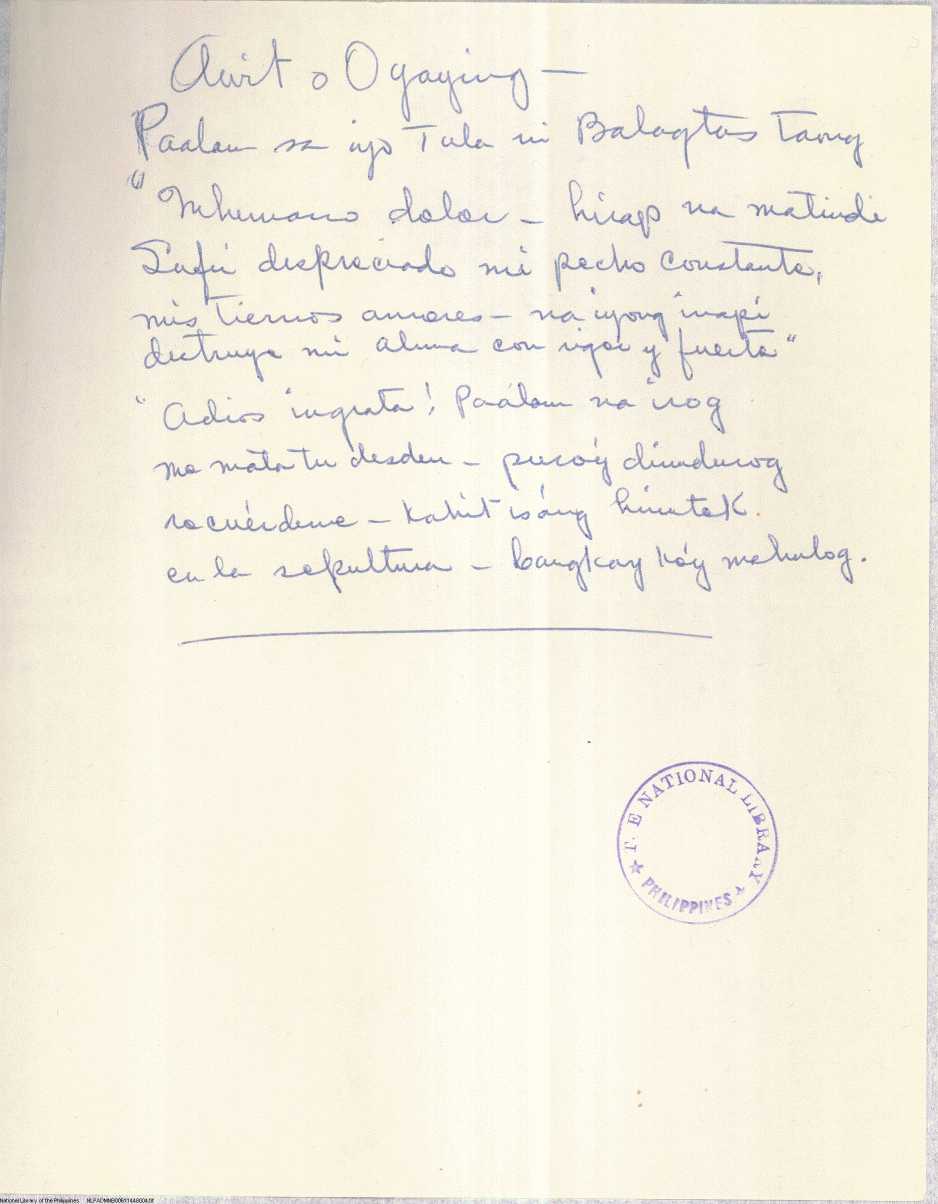 Awit o Oyaying —
Paalam sa iyo Tula ni Balagtas Taong
"Inhumano dolor — hirap na matindi
Sufri despreciado mi pecho constante,
mis tiernos amores — na iyong inapi
destruye mi alma con rigor y fuerta"
"Adios ingrata! Paálam na irog
me mata tu desden — puso'y dinudurog
recuérdeme — kahit isáng himutok.
en la sepultura — bangkay kó'y mahulog.
THE NATIONAL LIBRARY
PHILIPPINES
National Library of the Philippines